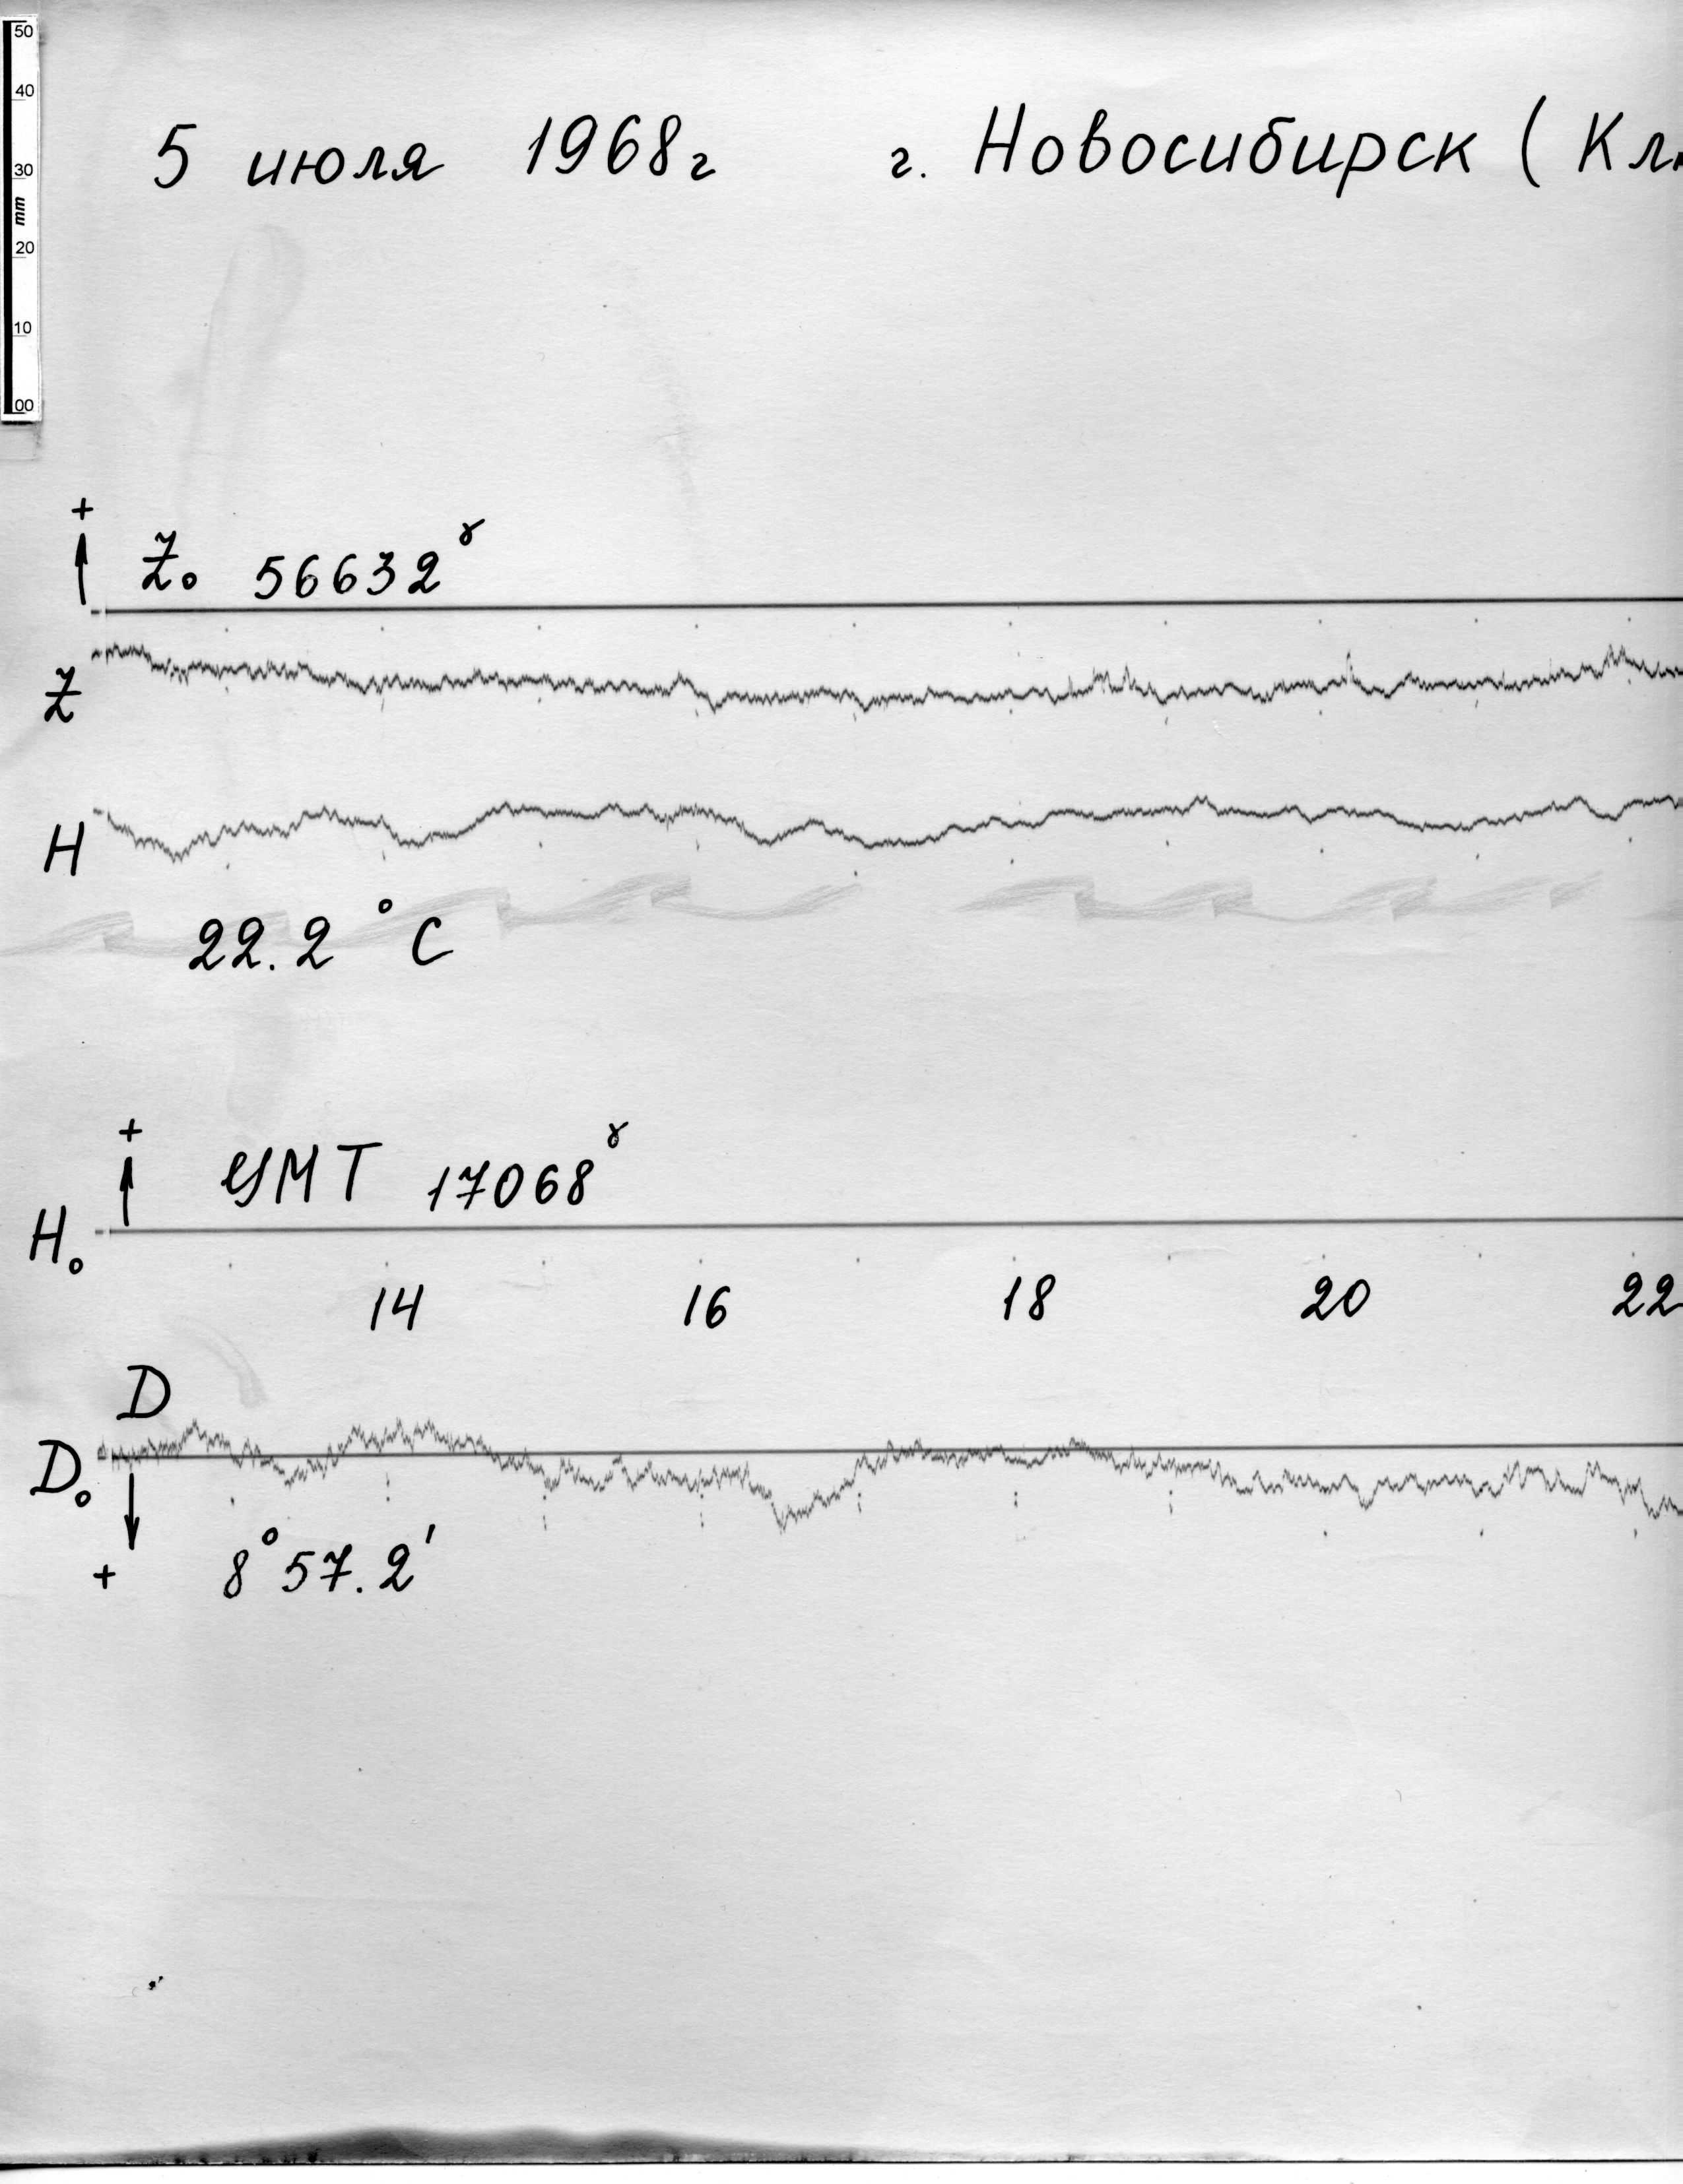 50
40
30
mm
20
10
00
5 июля 1968г г. Новосибирск ( Кл
+
Z₀ 56632ɣ
Z
H
22.2 °C
+
УМТ 17068ɣ
H₀
14 16 18 20 22
D
D₀
+ 8°57.2'